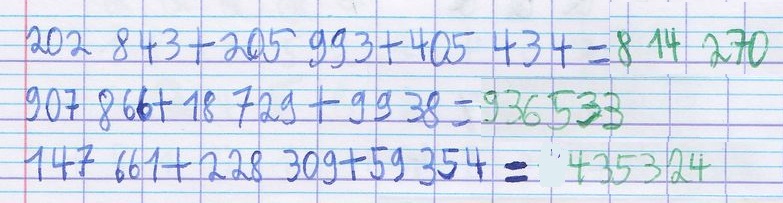 202 843+205 993+405 434=814 270
907 866+18 729+9938=936533
147 661+228 309+59 354=435324